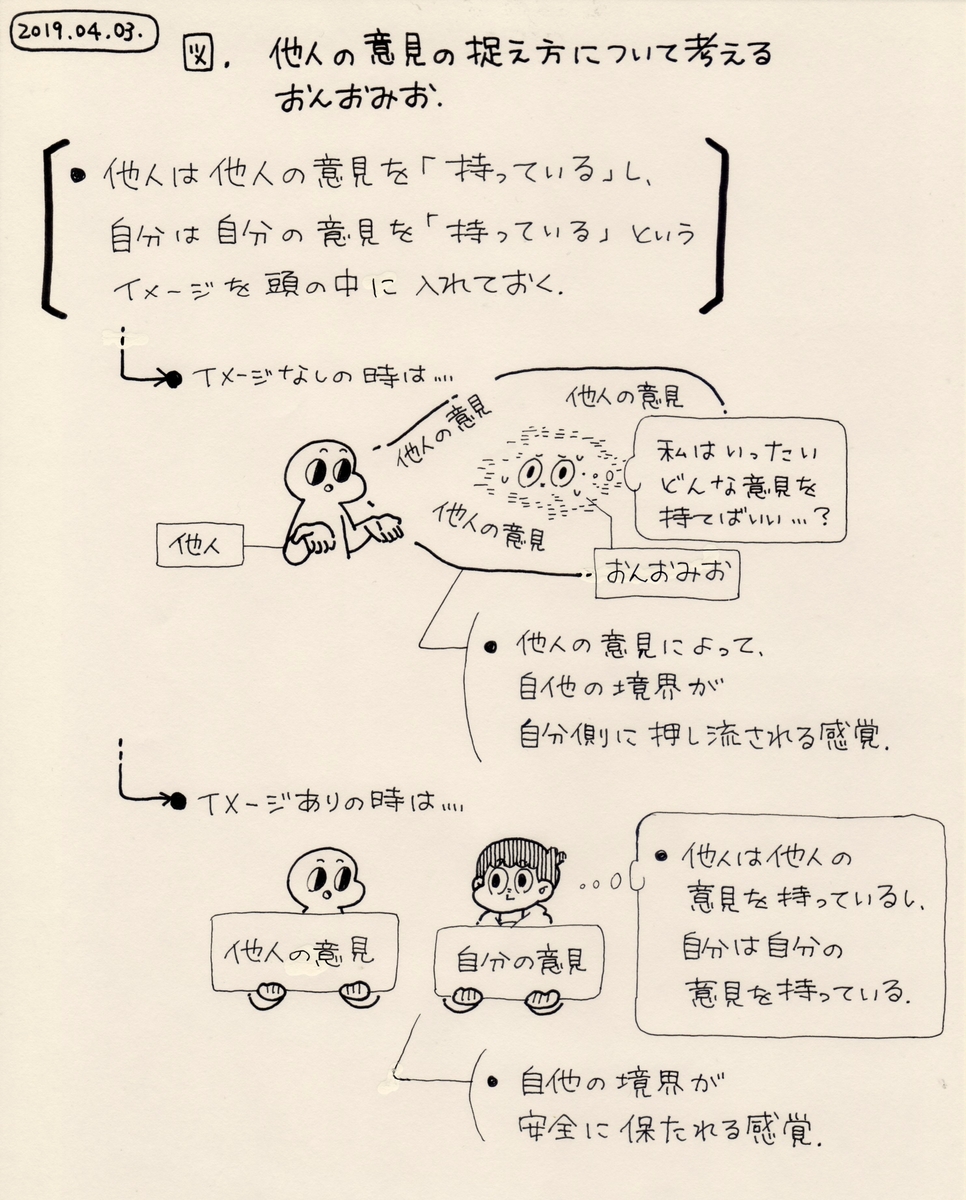 2019.04.03.
図. 他人の意見の捉え方について考える
おんおみお.
他人は他人の意見を「持っている」し、
自分は自分の意見を「持っている」という
イメージを頭の中に入れておく.
イメージなしの時は....
他人の意見
他人の意見
他人の意見
私はいったい
どんな意見を
持てばいい...?
他人
おんおみお
他人の意見によって、
自他の境界が
自分側に押し流される感覚.
イメージありの時は....
他人の意見
自分の意見
他人は他人の
意見を持っているし、
自分は自分の
意見を持っている.
自他の境界が
安全に保たれる感覚.